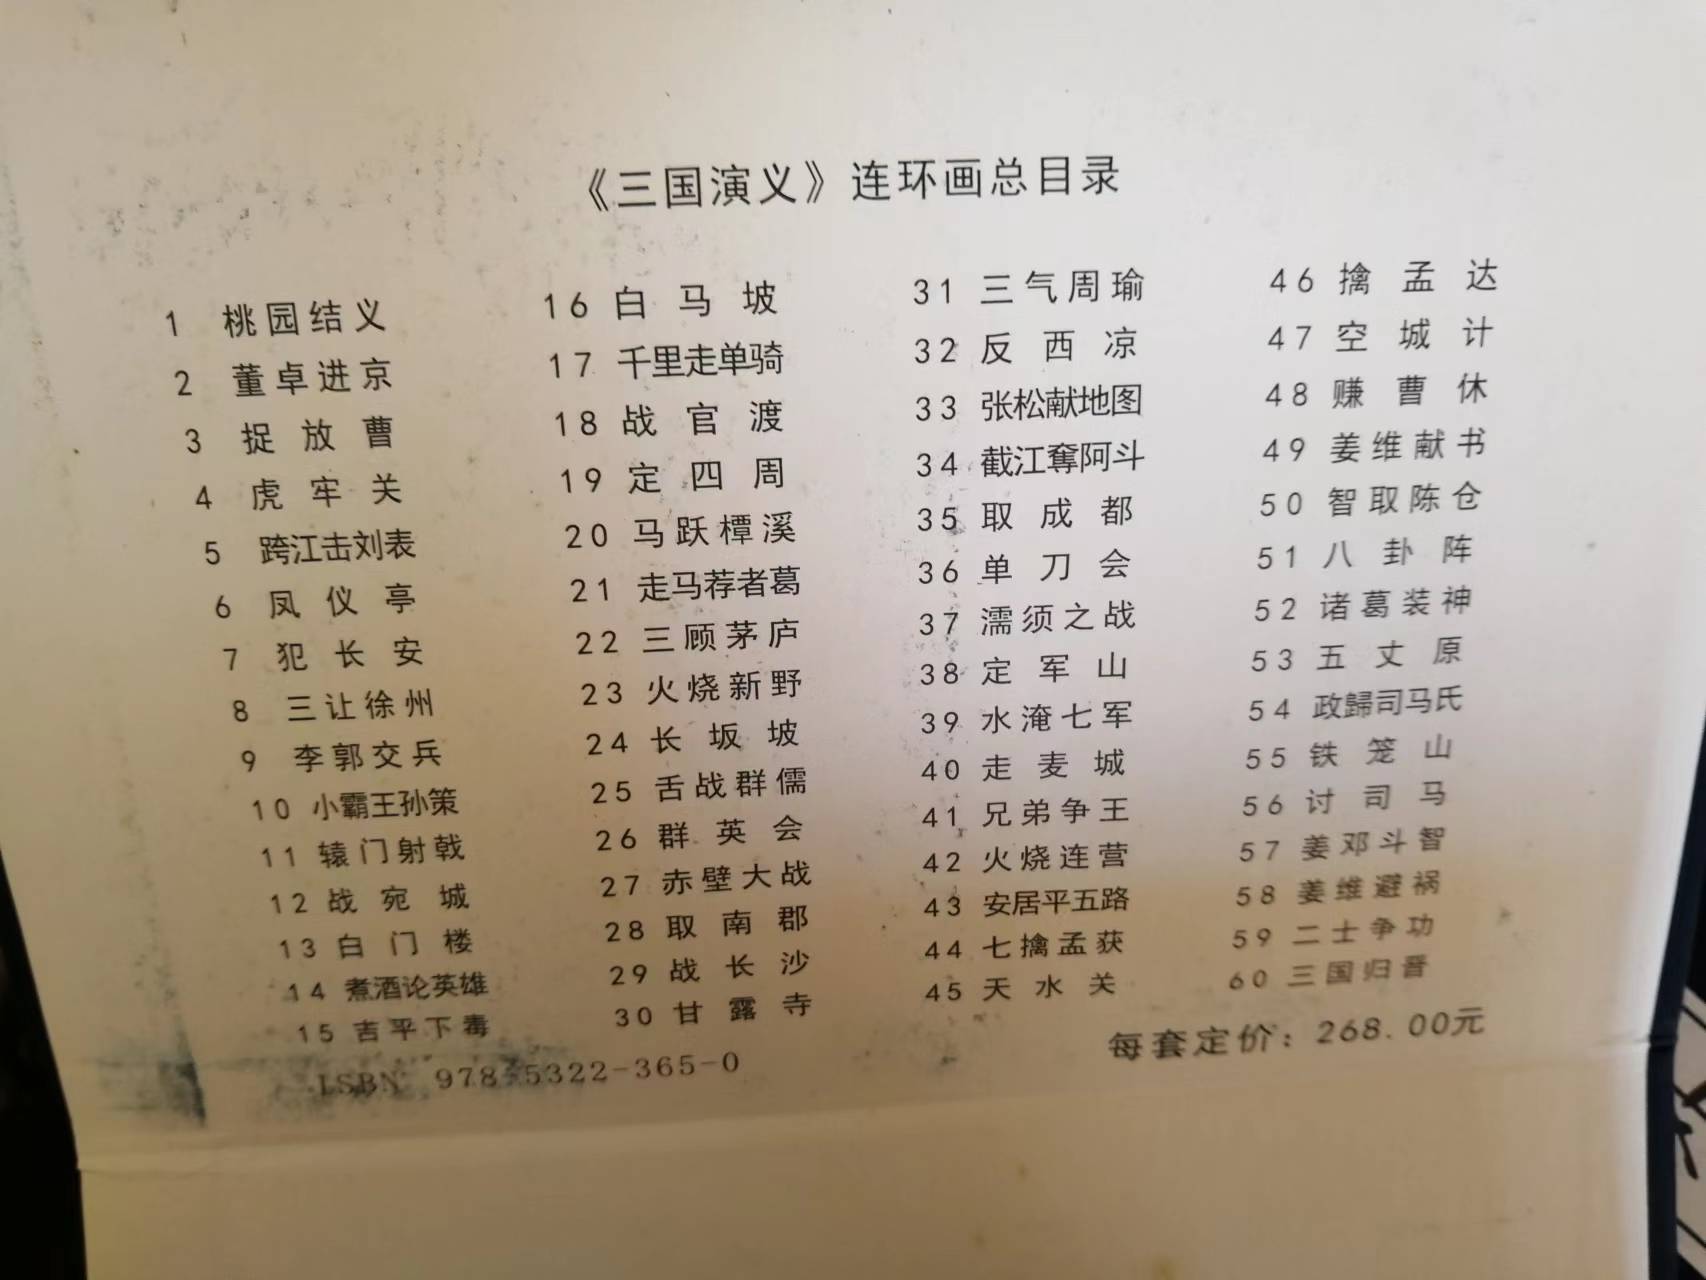 《三国演义》连环画总目录
1 桃园结义
2 董卓进京
3 捉放曹
4 虎牢关
5 跨江击刘表
6 凤仪亭
7 犯长安
8 三让徐州
9 李郭交兵
10 小霸王孙策
11 辕门射戟
12 战宛城
13 白门楼
14 煮酒论英雄
15 吉平下毒
16 白马坡
17 千里走单骑
18 战官渡
19 定四周
20 马跃橝溪
21 走马荐者葛
22 三顾茅庐
23 火烧新野
24 长坂坡
25 舌战群儒
26 群英会
27 赤壁大战
28 取南郡
29 战长沙
30 甘露寺
31 三气周瑜
32 反西凉
33 张松献地图
34 截江奪阿斗
35 取成都
36 单刀会
37 濡须之战
38 定军山
39 水淹七军
40 走麦城
41 兄弟争王
42 火烧连营
43 安居平五路
44 七擒孟获
45 天水关
46 擒孟达
47 空城计
48 赚曹休
49 姜维献书
50 智取陈仓
51 八卦阵
52 诸葛装神
53 五丈原
54 政歸司马氏
55 铁笼山
56 讨司马
57 姜邓斗智
58 姜维避祸
59 二士争功
60 三国归晋
ISBN 978-5322-365-0
每套定价：268.00元